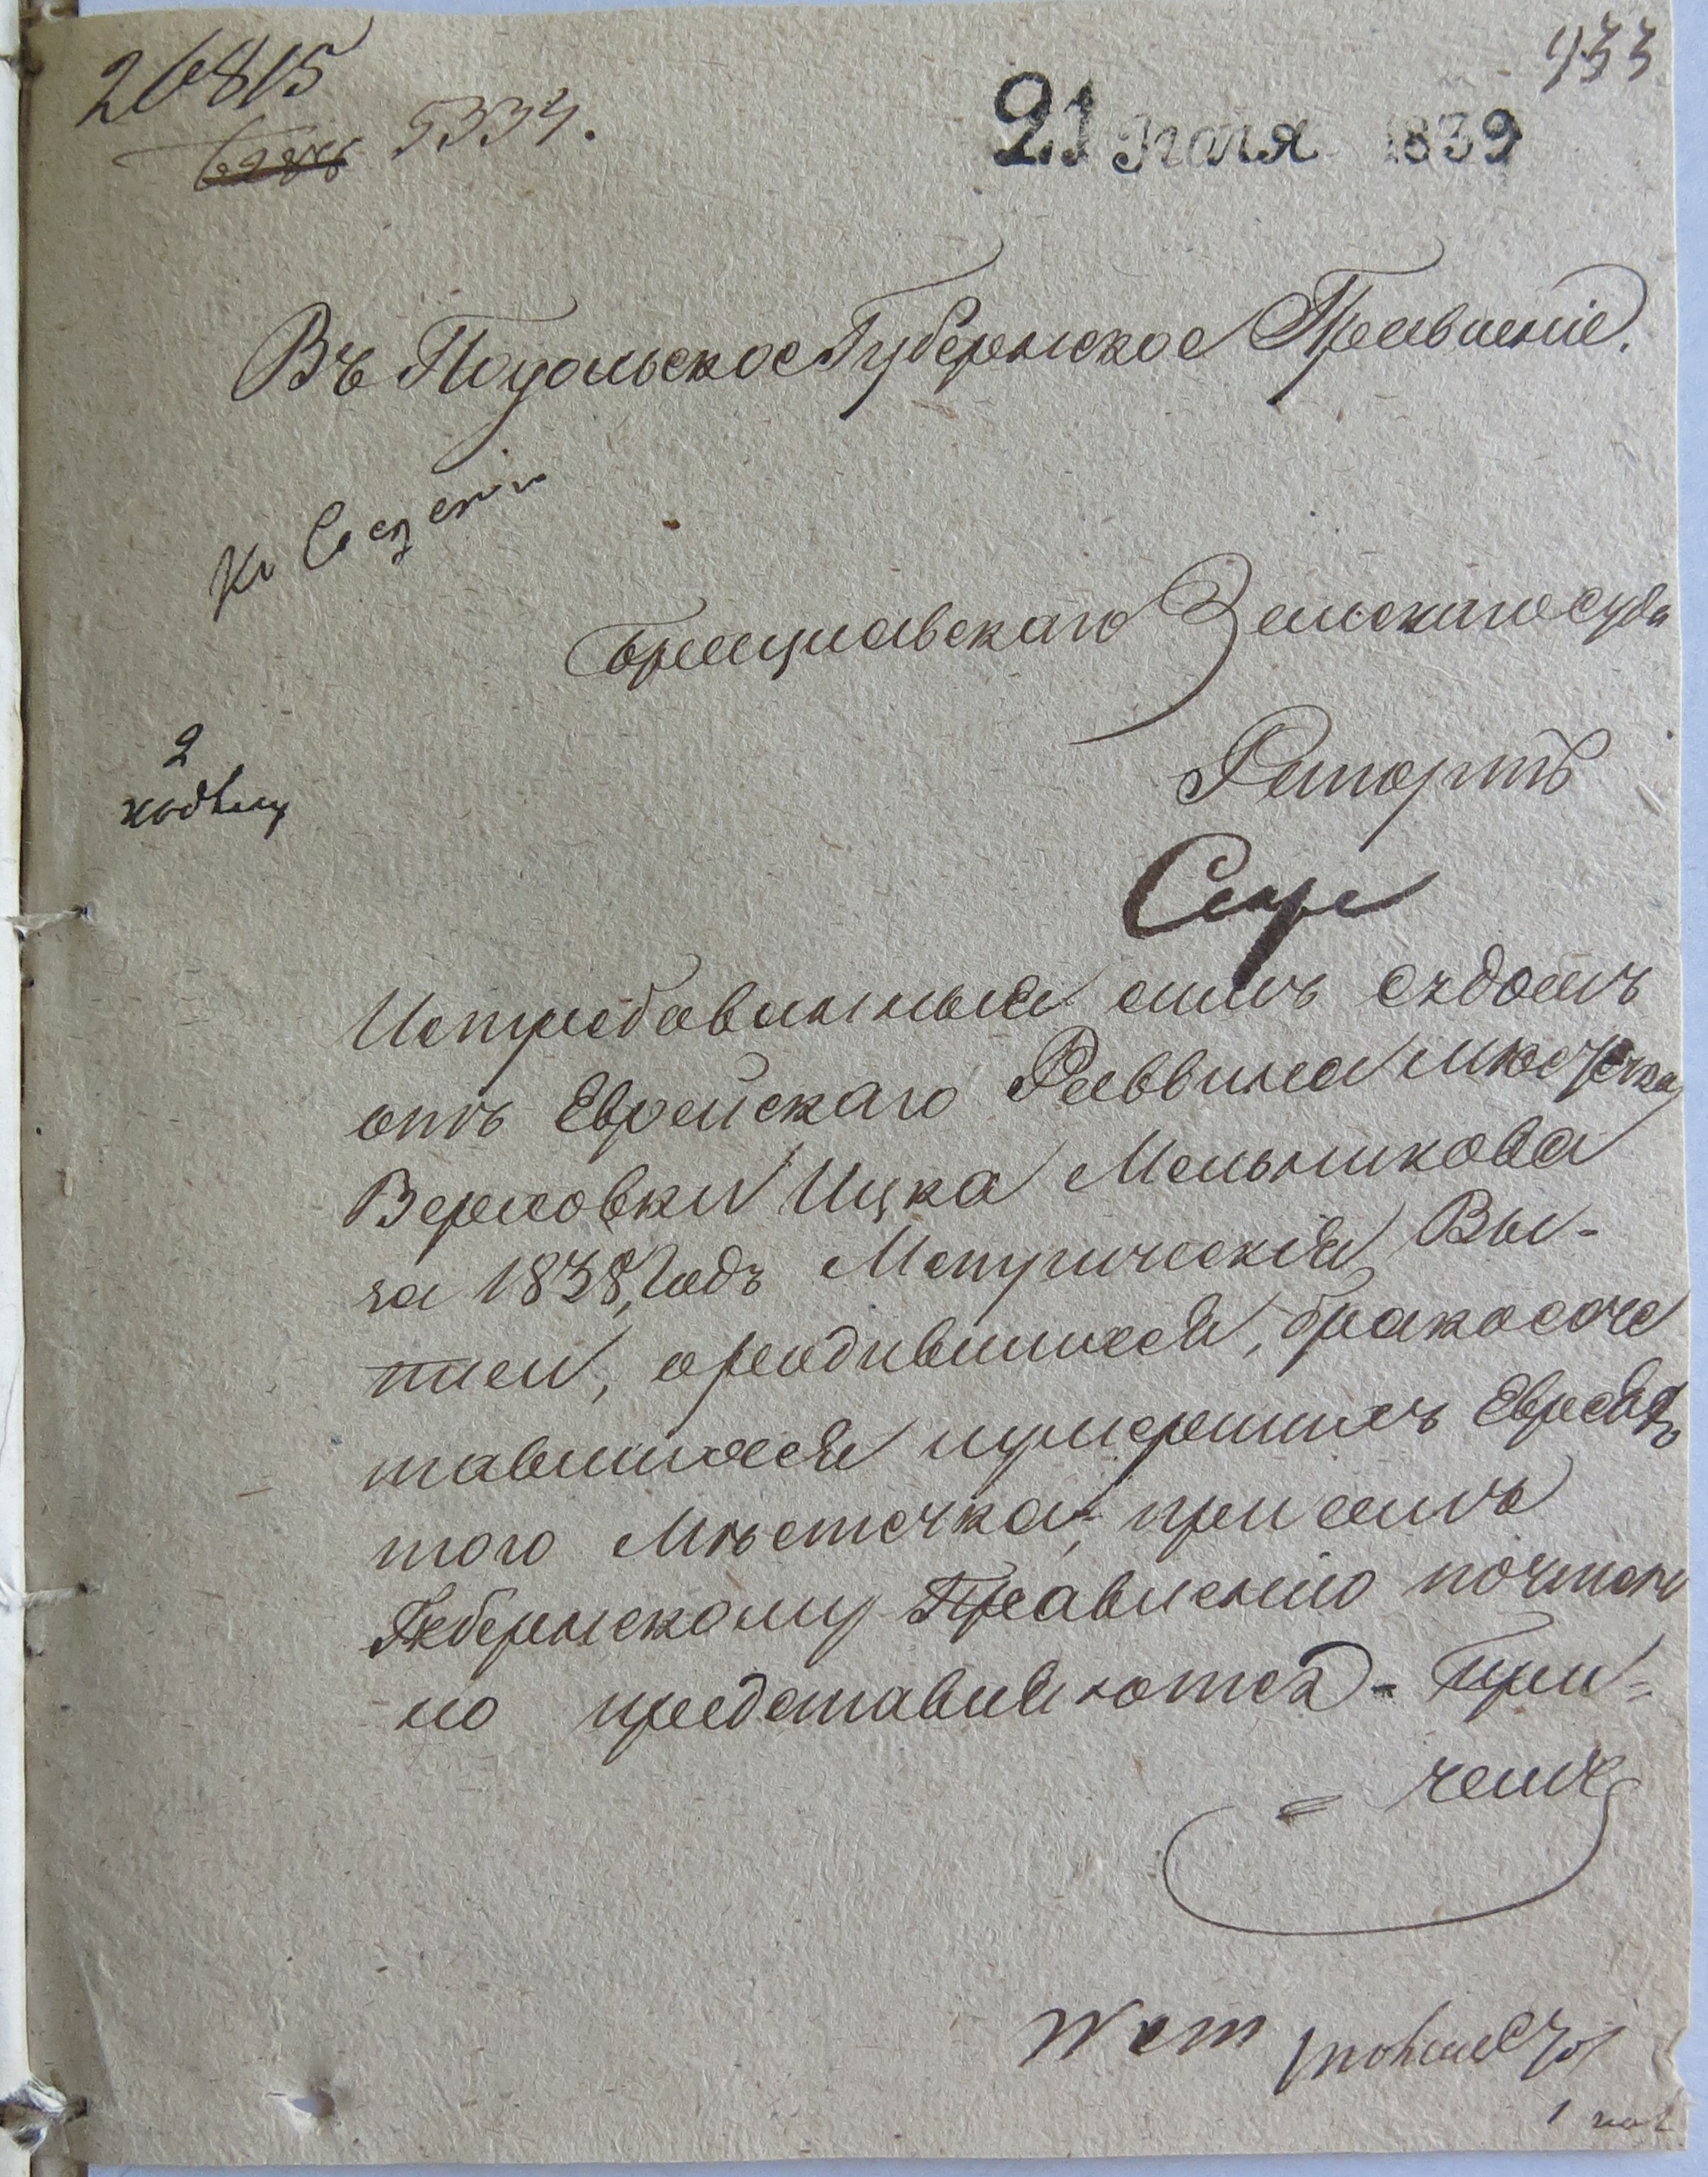 933
26815
5334.
21 Июля 1839
Въ Подольское Губернское Правленіе.
Къ Сведенію
Брацлавскаго Земскаго суда
2
Рапортъ
Истребованныя симъ судомъ
отъ Еврейскаго Раввина местечка
Верховки Ицка Мельникова
за 1838, Годъ Метрическія Вы-
писи, ородившихся, бракосоче
тавшихся иумершихъ Евреяхъ
того Мѣстечка, при семъ
Губернскому Правленію почтен
но представляются - При=
чемъ